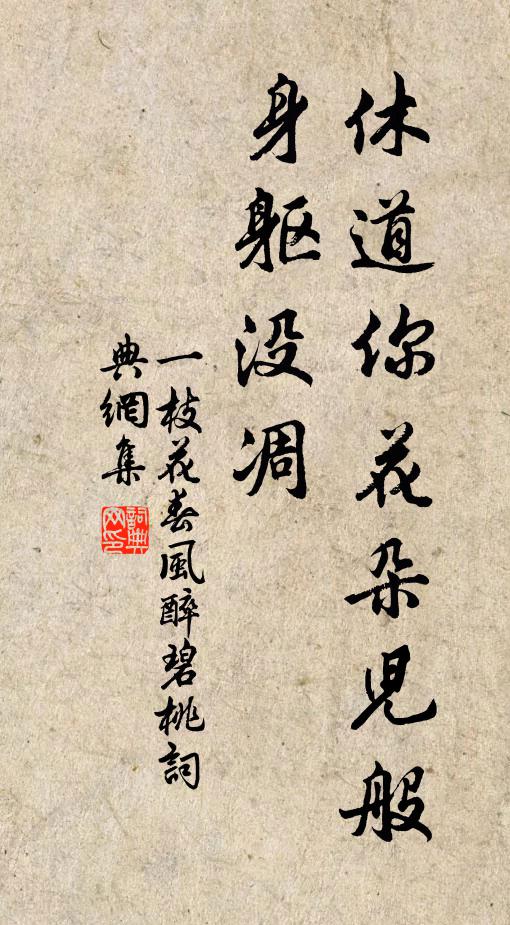 休道你花朵兒般
身軀没凋
一枝花春風醉碧桃詞
典網集
詞典网印